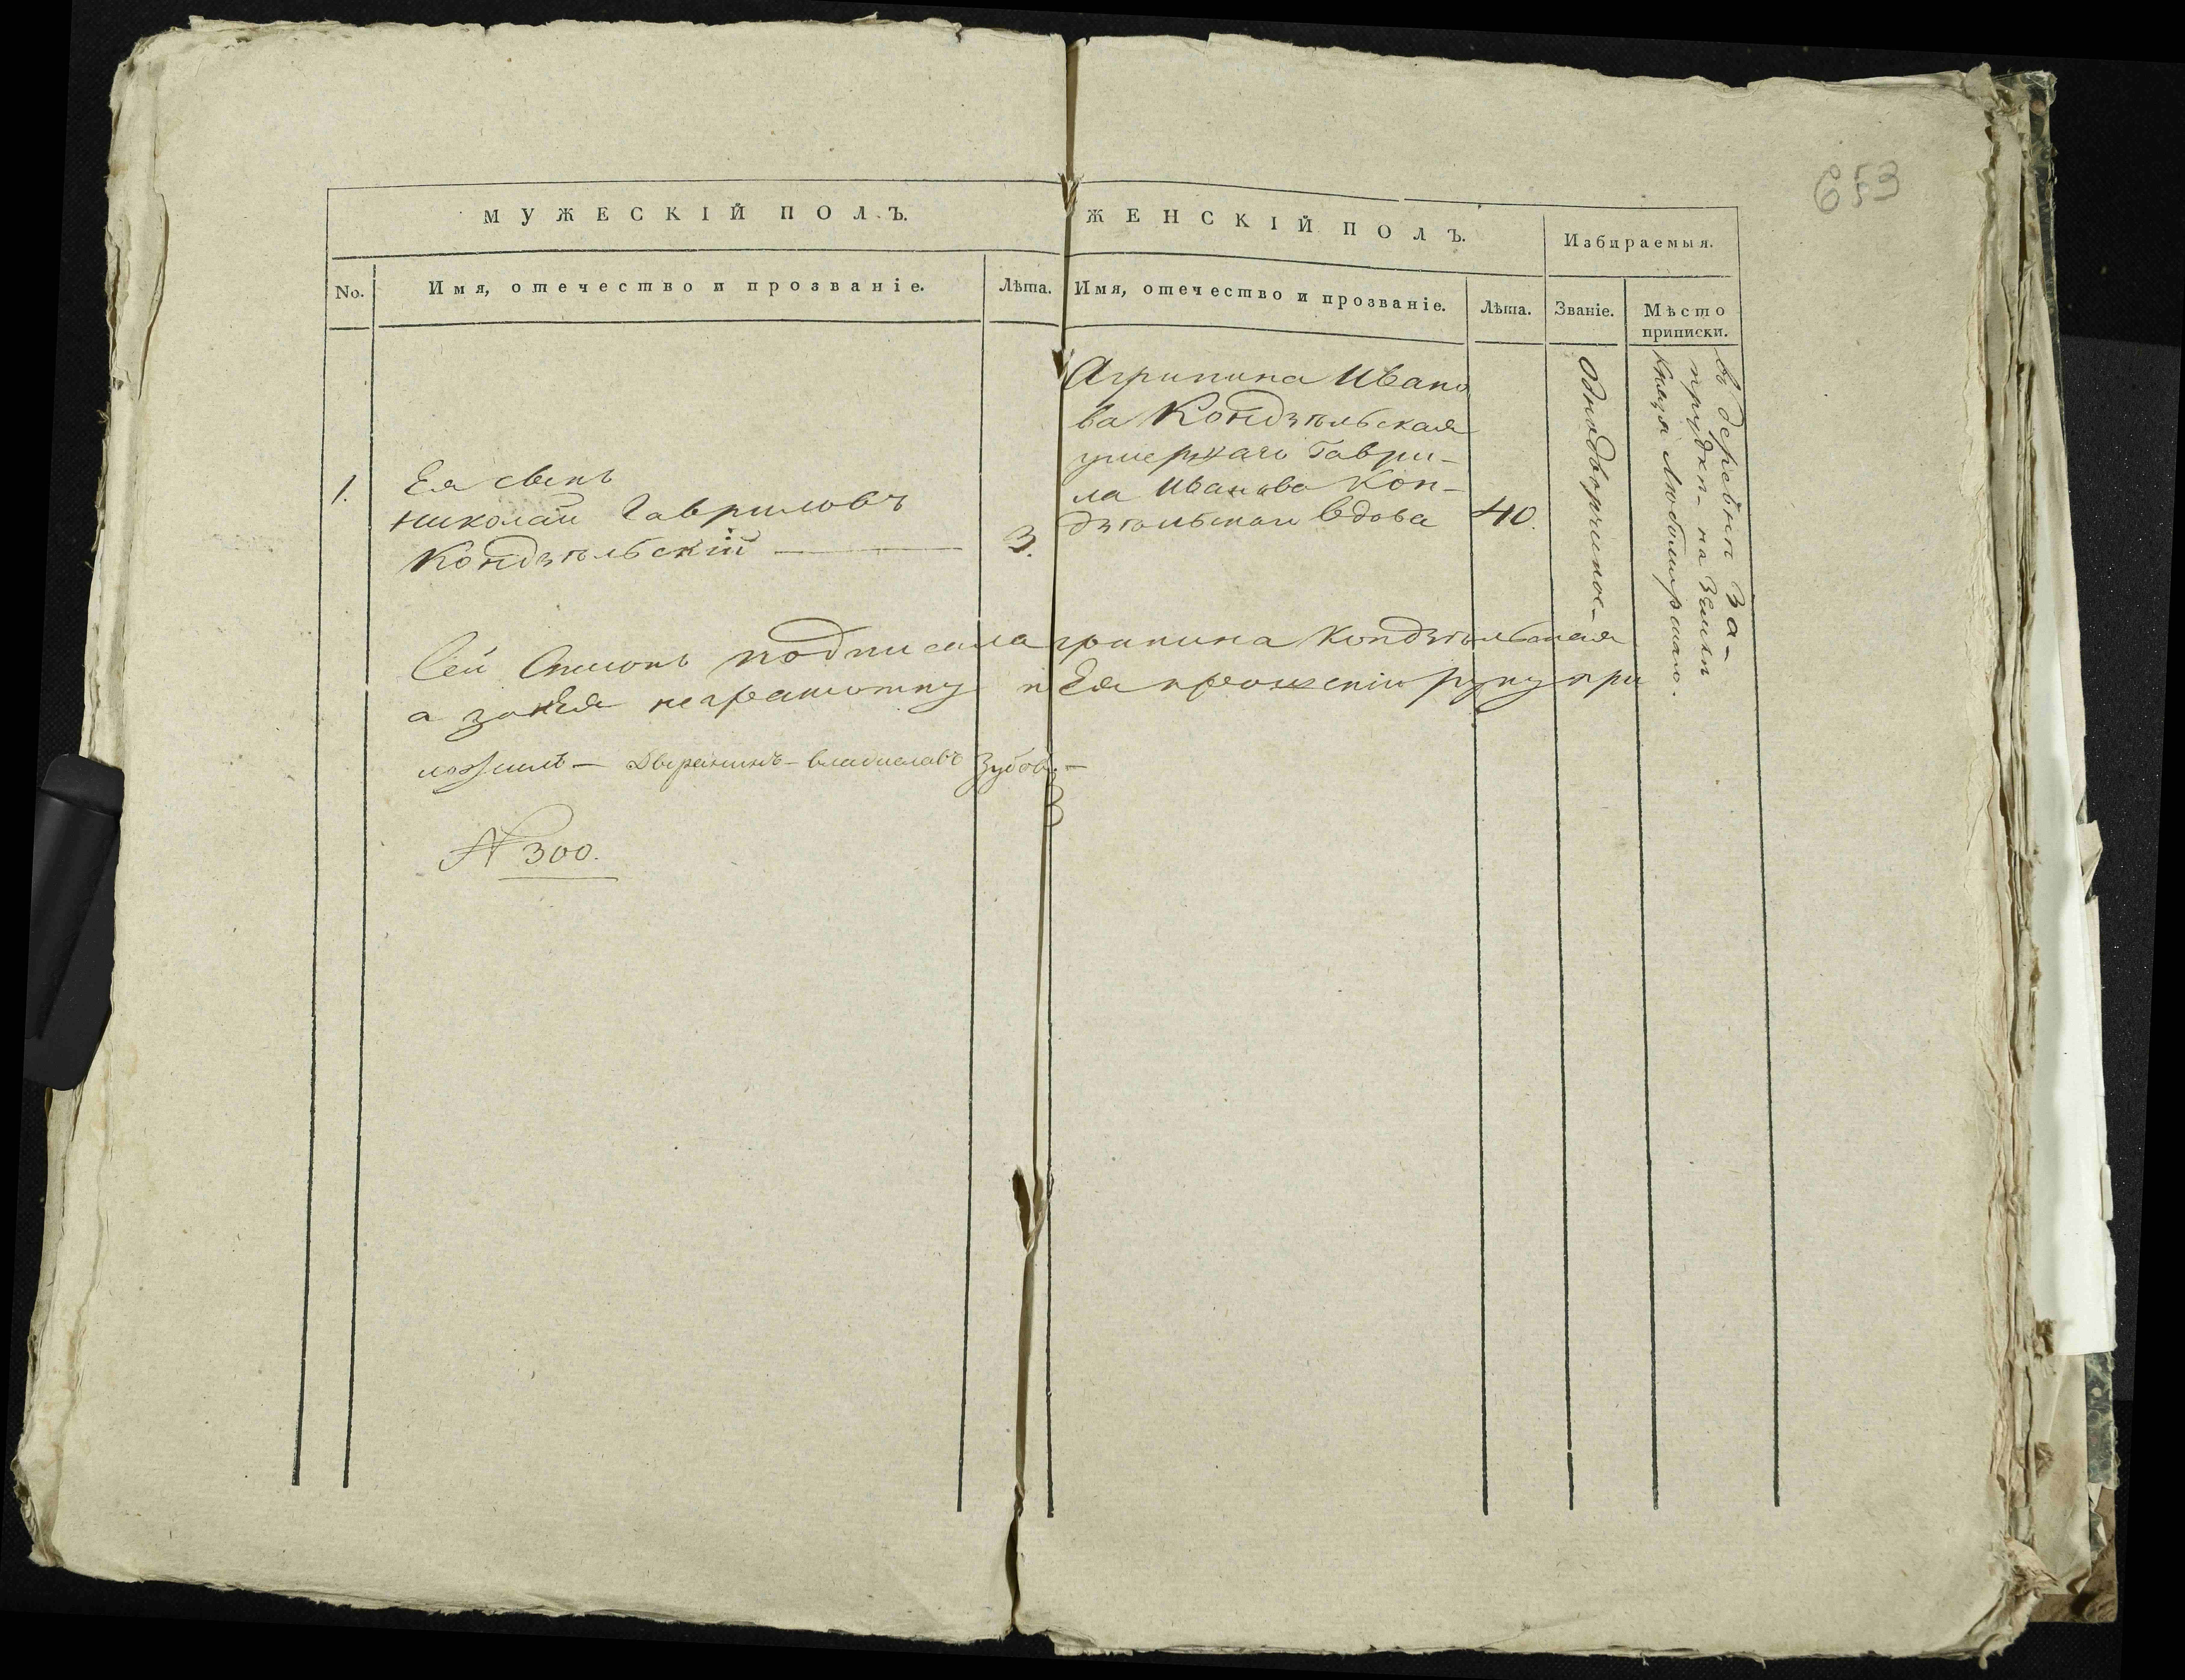 653
МУЖЕСКІЙ ПОЛЪ.
ЖЕНСКІЙ ПОЛЪ.
Избираемыя.
No.
Имя, отечество и прозваніе.
Лѣта.
Имя, отечество и прозваніе.
Лѣта.
Званіе.
Мѣсто
приписки.
1.
Ея сынъ
Николай Гавриловъ
Кондзѣльскій
3.
Агрипина Ивано
ва Кондзѣльская
умершаго Гаври-
ла Иванова Кон-
дзѣльская вдова
40.
Однодворческое
въ деревни За-
прудки на Земли
Князя Любомирскаго.
Сей Списокъ подписала Агрипина Кондзѣльская
а за нея неграмотну Ея прошенію руку при
ложилъ - Дворянинъ - Владиславъ Зубов. -
N 300.